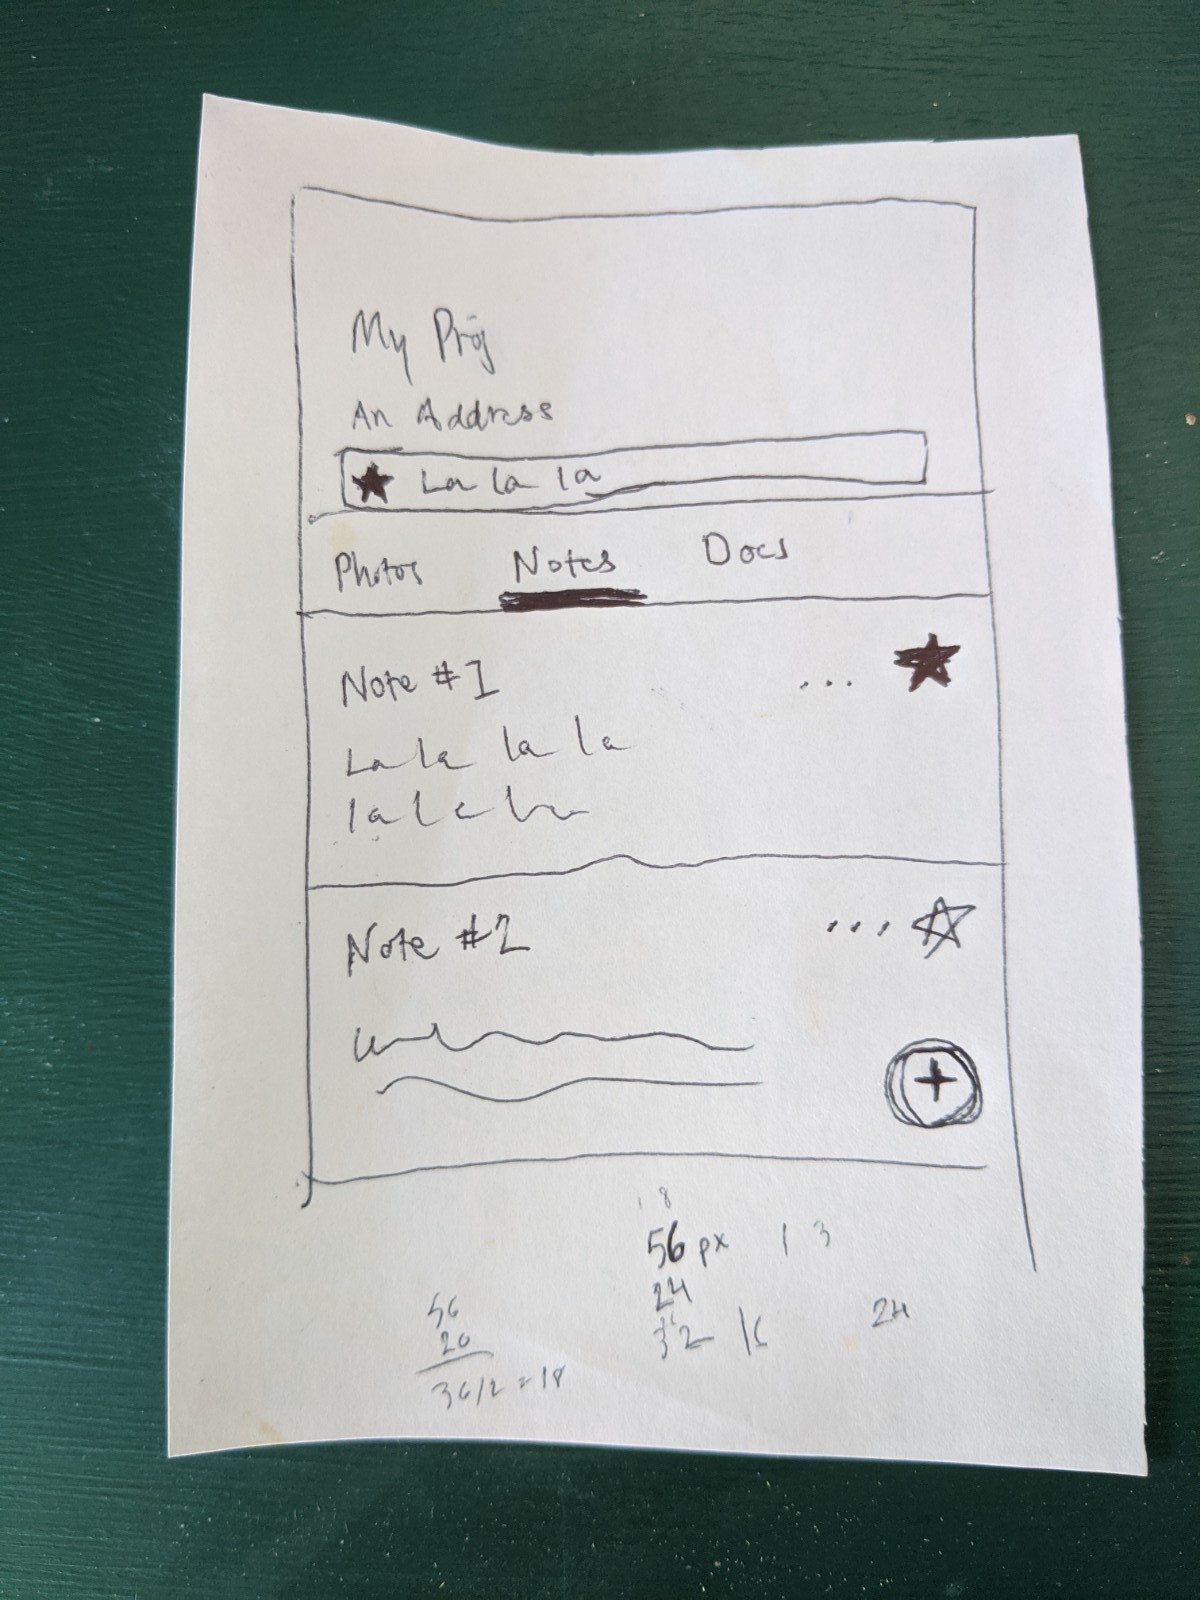 My Proj
An Address
★ La la la
Photos Notes Docs
Note #1 ...
La la la la
la la la
Note #2 ...
+
8
56 px 1 3
24
32 24
56
20
36/2 = 18